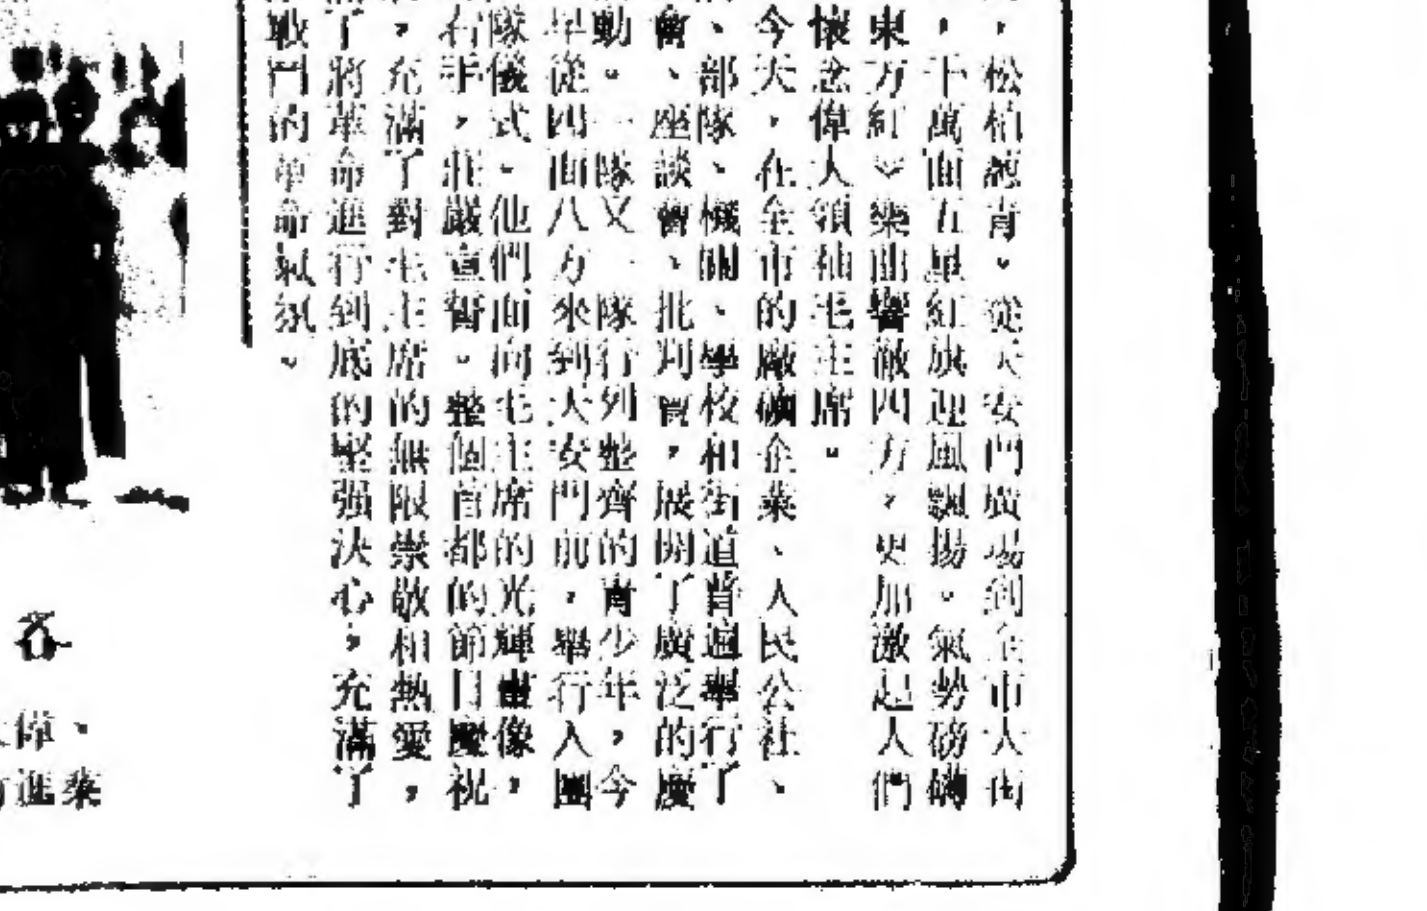 ，松柏蒼青。從天安門廣場到全市大街
，十萬面五星紅旗迎風飄揚。氣勢磅礴
東方紅》樂曲響徹四方，更加激起人們
懷念偉人領袖毛主席。
今天，在全市的廠礦企業、人民公社、
、部隊、機關、學校和街道普遍舉行了
會、座談會、批判會，展開了廣泛的慶
動。一隊又一隊行列整齊的青少年，今
早從四面八方來到天安門前，舉行入團
隊儀式。他們面向毛主席的光輝畫像，
右手，莊嚴宣誓。整個首都的節日慶祝
，充滿了對毛主席的無限崇敬和熱愛，
了將革命進行到底的堅强決心，充滿了
戰鬥的革命氣氛。
偉、
進業